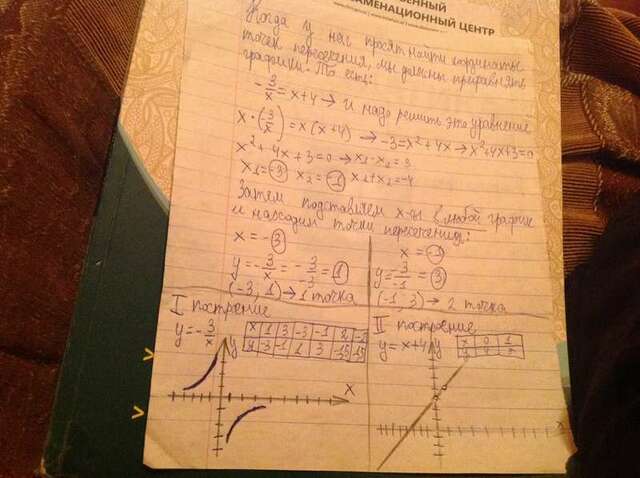 ЗАМЕНАЦИОННЫЙ ЦЕНТР
Когда у нас просят найти координаты
точек пересечения, мы должны приравнять
графики. То есть:
-3/x = x+4 → и надо решить это уравнение
x·(-3/x) = x(x+4) → -3=x²+4x → x²+4x+3=0
x²+4x+3=0 → x₁·x₂=3
x₁=-3 x₂=-1 x₁+x₂=-4
Затем подставляем x-ы в любой график
и находим точки пересечения:
x=-3
y=-3/x=-3/-3=1
(-3, 1) → 1 точка
x=-1
y=-3/-1=3
(-1, 3) → 2 точка
I построение
y=-3/x
x 1 3 -3 -1 2
y -3 -1 1 3 -1,5
y
x
II построение
y=x+4
x 0 1
y 4
y
x